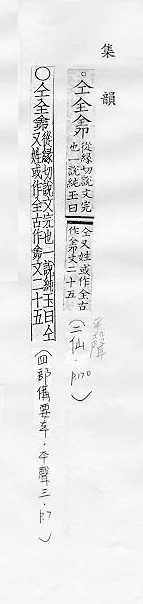 集韻
○仝全㒰
從緣切說文完
也一說純玉曰
仝又姓或作全古
作㒰文二十五
(二仙．p170)
○仝全㒰
從緣切說文完也一說純玉曰仝
又姓或作全古作㒰文二十五
(四部備要本．平聲三．p.7)